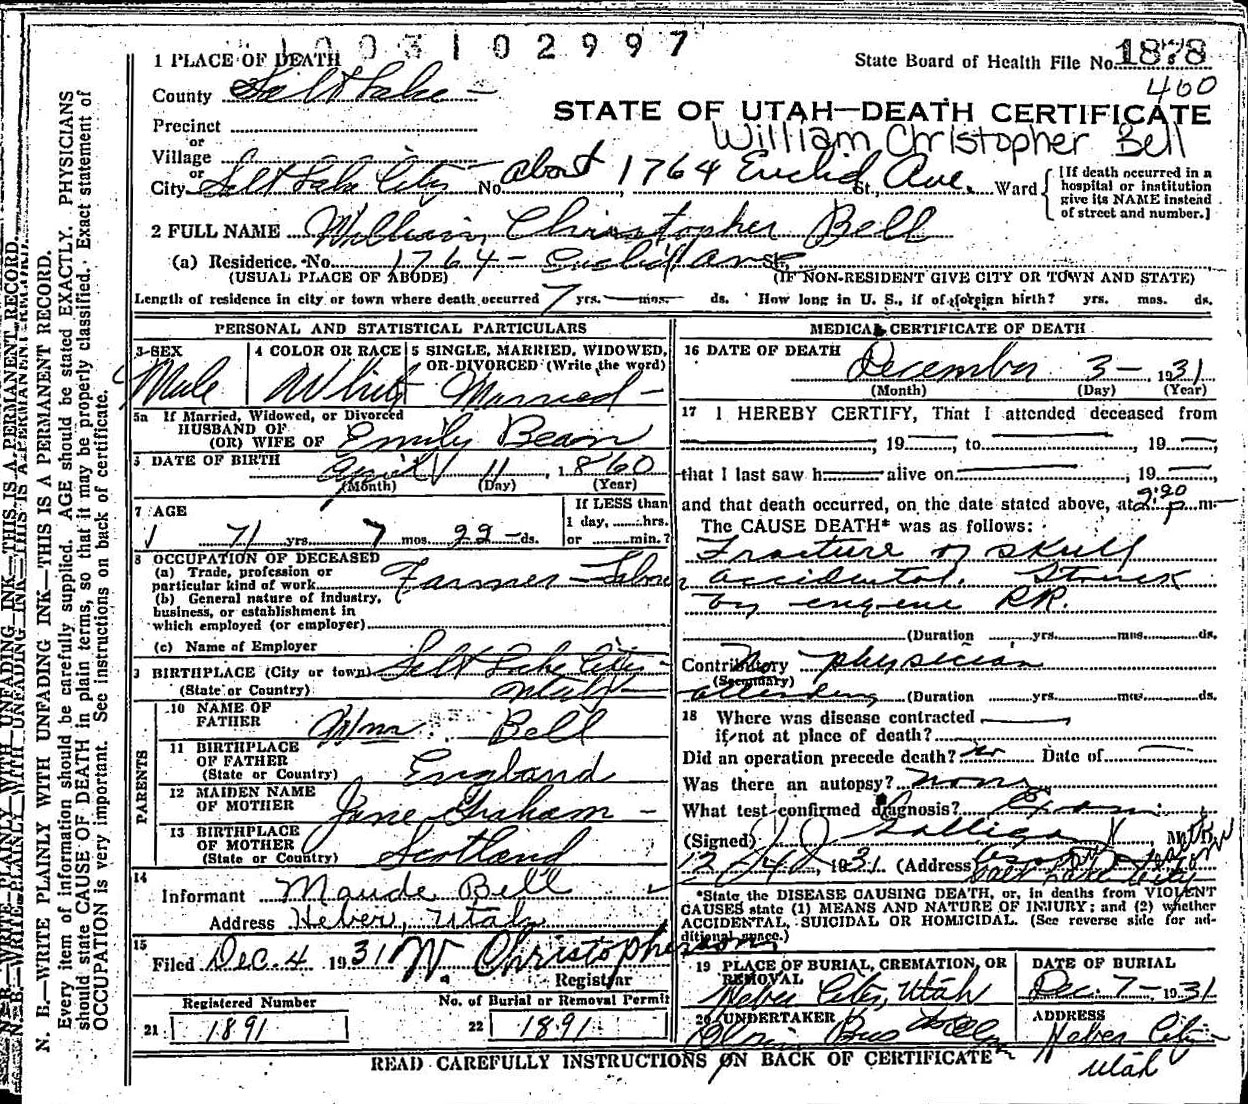 1003102997
1 PLACE OF DEATH
State Board of Health File No. 1878
County Salt Lake
460
STATE OF UTAH—DEATH CERTIFICATE
Precinct
William Christopher Bell
or
Village
or
City Salt Lake City No. about 1764 Euclid Ave. St., Ward
[If death occurred in a hospital or institution give its NAME instead of street and number.]
2 FULL NAME William Christopher Bell
(a) Residence. No. 1764 - Euclid Ave St.
(USUAL PLACE OF ABODE) (IF NON-RESIDENT GIVE CITY OR TOWN AND STATE)
Length of residence in city or town where death occurred 7 yrs. — mos. ds. How long in U. S., if of foreign birth? yrs. mos. ds.
PERSONAL AND STATISTICAL PARTICULARS
3 SEX
Male
4 COLOR OR RACE
White
5 SINGLE, MARRIED, WIDOWED,
OR DIVORCED (Write the word)
Married -
5a If Married, Widowed, or Divorced
HUSBAND OF
(OR) WIFE OF Emily Bean
DATE OF BIRTH April 11 1860
(Month) (Day) (Year)
7 AGE
71 yrs. 7 mos. 22 - ds.
If LESS than
1 day, ......hrs.
or ......min.?
8 OCCUPATION OF DECEASED
(a) Trade, profession or
particular kind of work Farmer - Labor
(b) General nature of industry,
business, or establishment in
which employed (or employer)
(c) Name of Employer
9 BIRTHPLACE (City or town) Salt Lake City -
(State or Country) Utah -
PARENTS
10 NAME OF
FATHER Wm Bell
11 BIRTHPLACE
OF FATHER
(State or Country) England
12 MAIDEN NAME
OF MOTHER Jane Graham -
13 BIRTHPLACE
OF MOTHER
(State or Country) Scotland
14
Informant Maude Bell
Address Heber, Utah
15
Filed Dec. 4 1931 W. Christopherson
Registrar
Registered Number
21 1891
No. of Burial or Removal Permit
22 1891
MEDICAL CERTIFICATE OF DEATH
16 DATE OF DEATH
December 3 - 1931
(Month) (Day) (Year)
17 I HEREBY CERTIFY, That I attended deceased from
, 19 — to , 19 —,
that I last saw h alive on , 19 —,
and that death occurred, on the date stated above, at 2:20 P m.
The CAUSE DEATH* was as follows:
Fracture of skull
accidental. Struck
by engine RR.
(Duration yrs. mos. ds.
Contributory No physician
(Secondary)
attending (Duration yrs. mos. ds.
18 Where was disease contracted
if not at place of death?
Did an operation precede death? No Date of
Was there an autopsy? None
What test confirmed diagnosis? Exam
(Signed) J J Galligan M.D.
12/4 1931 (Address) Salt Lake City
*State the DISEASE CAUSING DEATH, or, in deaths from VIOLENT
CAUSES state (1) MEANS AND NATURE OF INJURY; and (2) whether
ACCIDENTAL, SUICIDAL OR HOMICIDAL. (See reverse side for ad-
ditional space.)
19 PLACE OF BURIAL, CREMATION, OR
REMOVAL
Heber City, Utah
DATE OF BURIAL
Dec. 7 - 1931
20 UNDERTAKER
Olpin Bros
ADDRESS
Heber City
Utah
READ CAREFULLY INSTRUCTIONS ON BACK OF CERTIFICATE
N. B.—WRITE PLAINLY WITH UNFADING INK—THIS IS A PERMANENT RECORD.
Every item of information should be carefully supplied. AGE should be stated EXACTLY. PHYSICIANS
should state CAUSE OF DEATH in plain terms, so that it may be properly classified. Exact statement of
OCCUPATION is very important. See instructions on back of certificate.
N. B.—WRITE PLAINLY WITH UNFADING INK—THIS IS A PERMANENT RECORD.